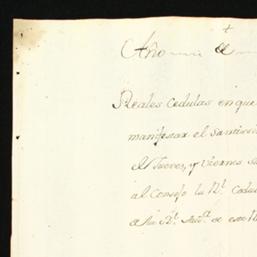 Año
Reales Cedulas en que
manifestar el santissi
el Jueves, y Viernes S
al Consejo la Rl.
a su Rl. Aud.ª de este